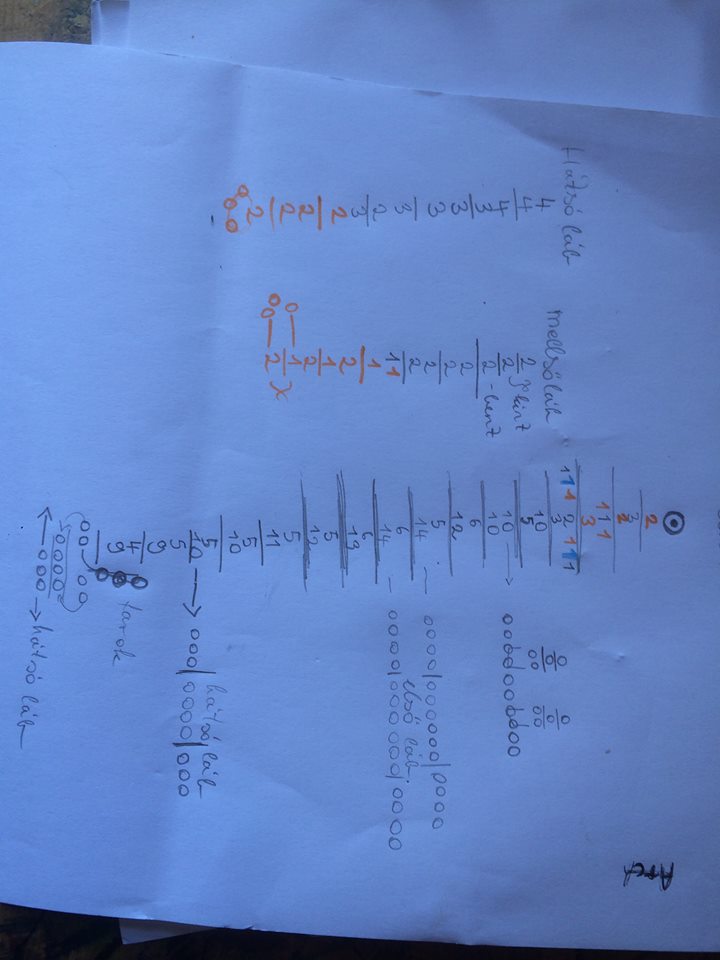 Hátsó láb
4
4
4
3
3
3
3
2
3
2
2
2
2
mellső láb
2 } kint
2
2 - bent
2
2
2
11
1
2
1
2
1
2 x
2
3
2
1 1 1
3
1 1 1 2 1 1 1
3
10
5
10
10
6
12
5
14
6
14
első láb
6
13
5
12
5
11
5
10
5
10 → hátsó láb
5
9
4 farok
9
→ hátsó láb